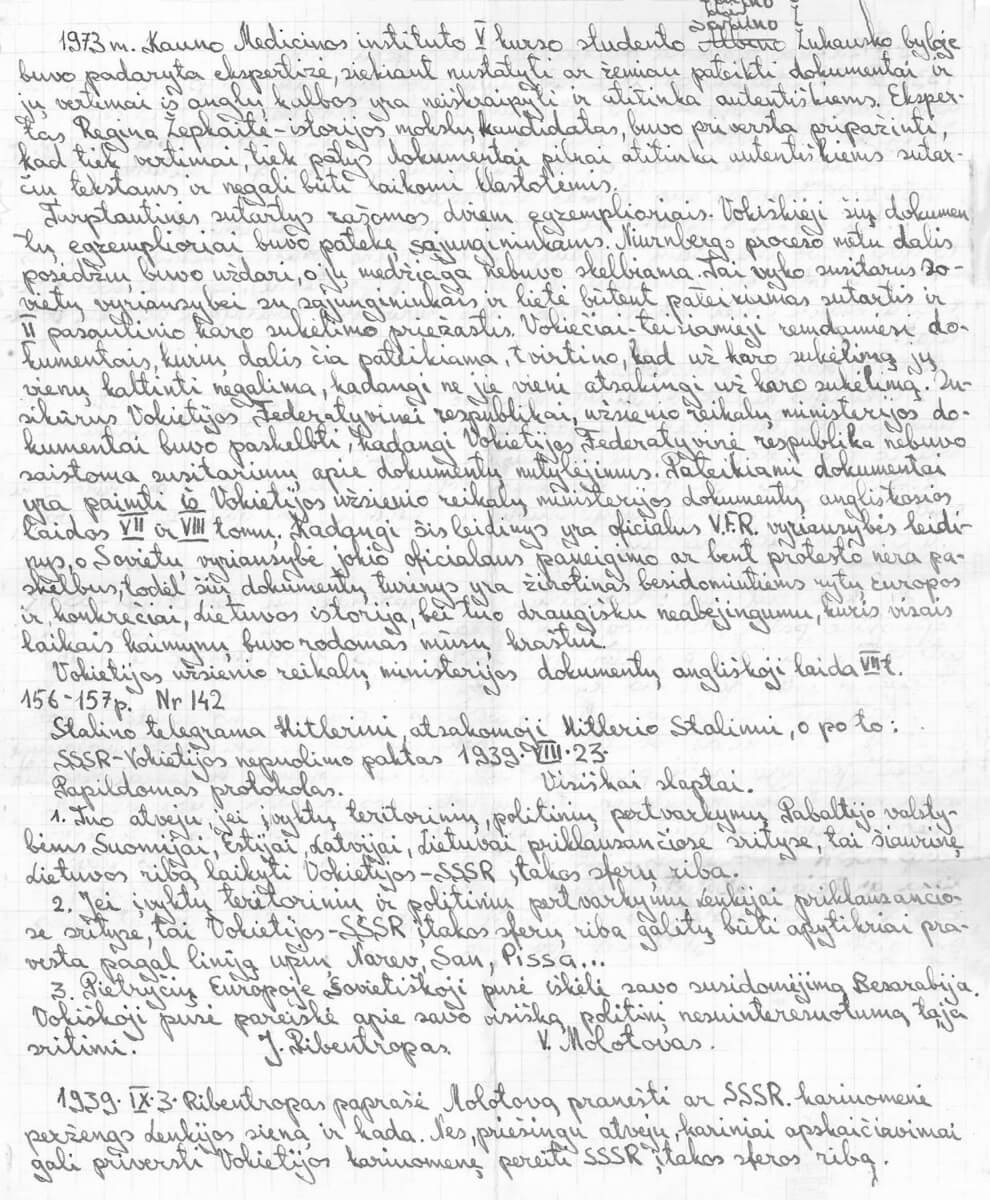 Šarūno
1973 m. Kauno Medicinos instituto V kurso studento Žukausko byloje
buvo padaryta ekspertizė, siekiant nustatyti ar žemiau pateikti dokumentai ir
jų vertimai iš anglų kalbos yra neiškraipyti ir atitinka autentiškiems. Eksper-
tas, Regina Žepkaitė-istorijos mokslų kandidatas, buvo priversta pripažinti,
kad tiek vertimai, tiek patys dokumentai pilnai atitinka autentiškiems sutar-
čių tekstams ir negali būti laikomi klastotėmis.
Tarptautinės sutartys rašomos dviem egzemplioriais. Vokiškieji šių dokumen
tų egzemplioriai buvo patekę sąjungininkams. Niurnbergo proceso metu dalis
posėdžių buvo uždari, o jų medžiaga nebuvo skelbiama. Tai vyko susitarus So-
vietų vyriausybei su sąjungininkais ir lietė būtent pateikiamas sutartis ir
II pasaulinio karo sukėlimo priežastis. Vokiečiai-teisiamieji remdamiesi do-
kumentais, kurių dalis čia pateikiama, tvirtino, kad už karo sukėlimą jų
vienų kaltinti negalima, kadangi ne jie vieni atsakingi už karo sukėlimą. Su-
sikūrus Vokietijos Federatyvinei respublikai, užsienio reikalų ministerijos do-
kumentai buvo paskelbti, kadangi Vokietijos Federatyvinė respublika nebuvo
saistoma susitarimų apie dokumentų nutylėjimus. Pateikiami dokumentai
yra paimti iš Vokietijos užsienio reikalų ministerijos dokumentų angliškosios
laidos VII ir VIII tomų. Kadangi šis leidinys yra oficialus V.F.R. vyriausybės leidi-
nys, o Sovietų vyriausybė jokio oficialaus paneigimo ar bent protesto nėra pa-
skelbus, todėl šių dokumentų turinys yra žinotinas besidomintiems rytų Europos
ir, konkrečiai, Lietuvos istorija, bei tuo draugišku neabejingumu, kuris visais
laikais kaimynų buvo rodomas mūsų kraštui.
Vokietijos užsienio reikalų ministerijos dokumentų angliškoji laida VII t.
156-157p. Nr 142
Stalino telegrama Hitleriui, atsakomoji Hitlerio Stalinui, o po to:
SSSR-Vokietijos nepuolimo paktas 1939.VIII.23
Papildomas protokolas. Visiškai slaptai.
1. Tuo atveju, jei įvyktų teritorinių, politinių pertvarkymų Pabaltijo valsty-
bėms Suomijai, Estijai, Latvijai, Lietuvai priklausančiose srityse, tai šiaurinę
Lietuvos ribą laikyti Vokietijos-SSSR įtakos sferų riba.
2. Jei įvyktų teritorinių ir politinių pertvarkymų Lenkijai priklausančio-
se srityse, tai Vokietijos-SSSR įtakos sferų riba galėtų būti apytikriai pra-
vesta pagal liniją upių Narev, San, Pissa...
3. Pietryčių Europoje Sovietiškoji pusė iškėlė savo susidomėjimą Besarabija.
Vokiškoji pusė pareiškė apie savo visišką politinį nesuinteresuotumą tąja
sritimi. J. Ribentropas. V. Molotovas.
1939.IX.3. Ribentropas paprašė Molotovą pranešti ar SSSR kariuomenė
peržengs Lenkijos sieną ir kada. Nes, priešingu atveju, kariniai apskaičiavimai
gali priversti Vokietijos kariuomenę pereiti SSSR įtakos sferos ribą.